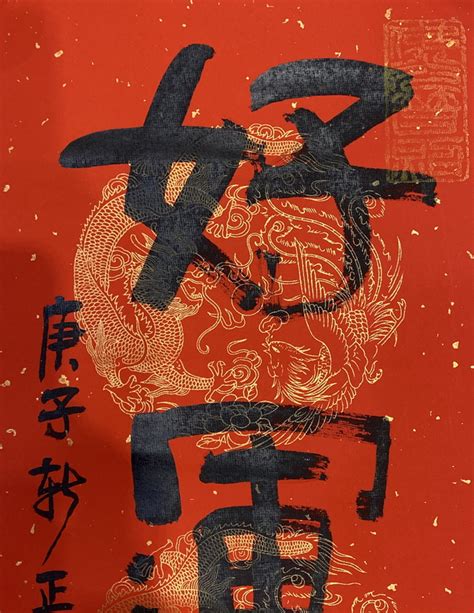 好運
庚子新正